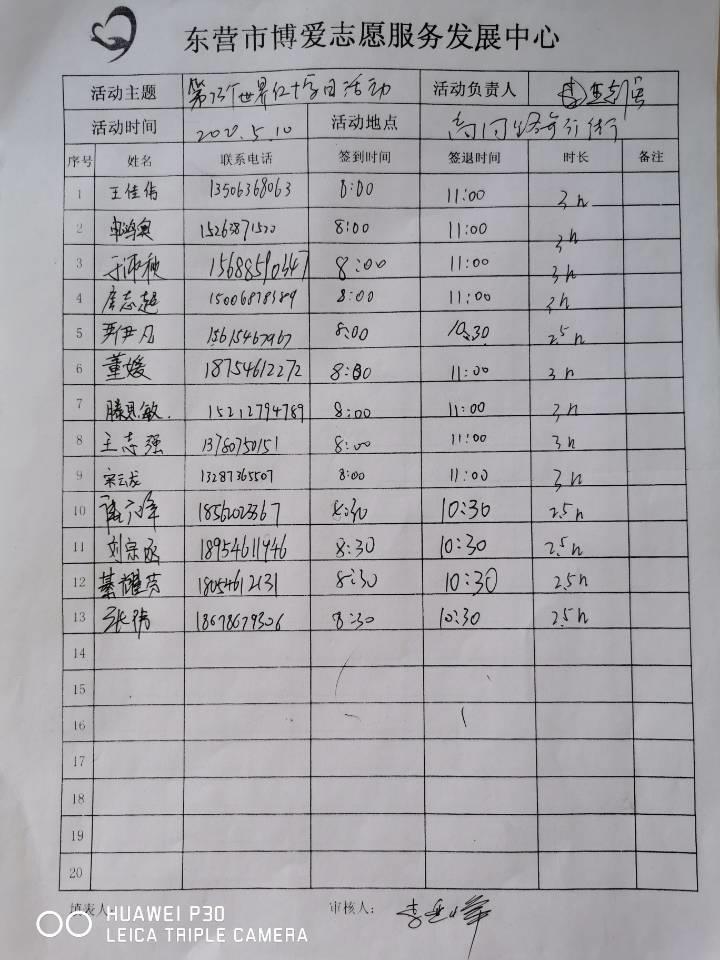 东营市博爱志愿服务发展中心
活动主题 第73个世界红十字日活动 活动负责人
活动时间 2020.5.10 活动地点 步行街
序号 姓名 联系电话 签到时间 签退时间 时长 备注
1 王佳伟 13506368063 8:00 11:00 3h
2 15263871520 8:00 11:00 3h
3 15688590347 8:00 11:00 3h
4 志超 15006878389 8:00 11:00 3h
5 尹凡 15615467967 8:00 10:30 2.5h
6 董媛 18754612272 8:00 11:00 3h
7 滕思敏 15212794789 8:00 11:00 3h
8 王志强 13780750151 8:00 11:00 3h
9 宋云龙 13287365507 8:00 11:00 3h
10 8:30 10:30 2.5h
11 刘宗函 18954611946 8:30 10:30 2.5h
12 綦耀芬 18054612131 8:30 10:30 2.5h
13 张伟 18678679306 8:30 10:30 2.5h
14
15
16
17
18
19
20
填表人 审核人：
HUAWEI P30
LEICA TRIPLE CAMERA